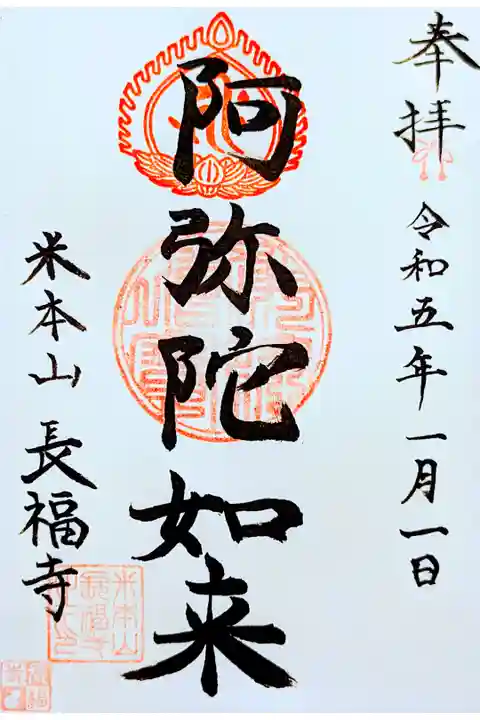 奉拝
令和五年一月一日
阿弥陀如来
米本山 長福寺
米本山
長福寺